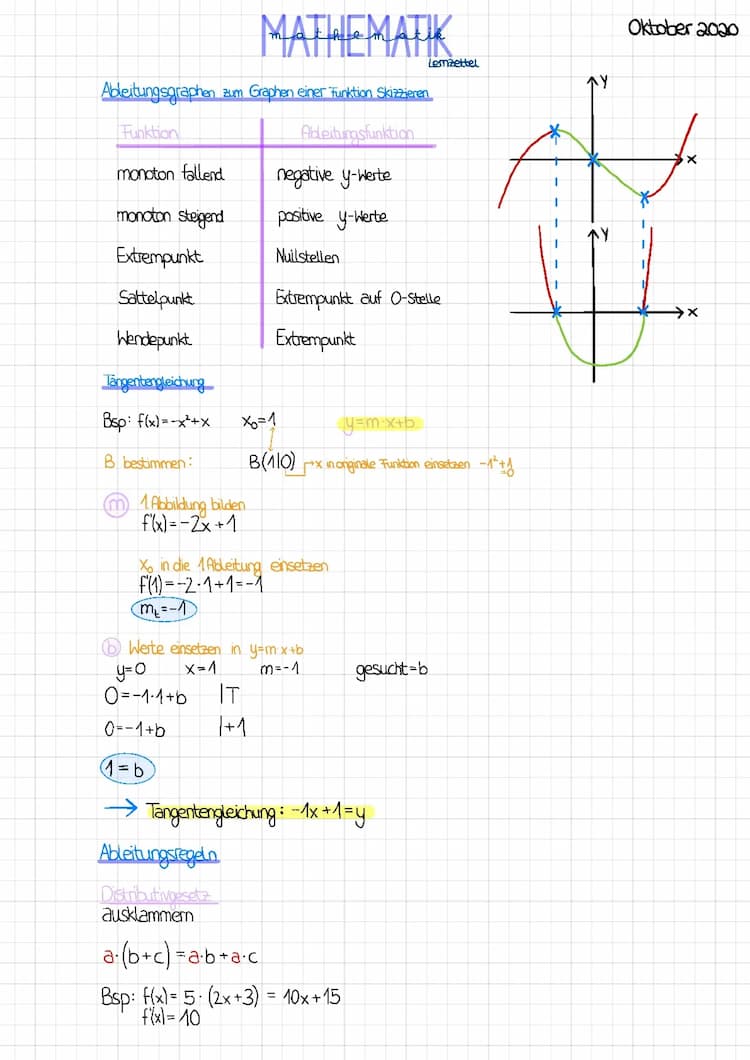 MATHEMATIK
mathematik
Oktober 2020
Lernzettel
Ableitungsgraphen zum Graphen einer Funktion Skizzieren
Funktion Ableitungsfunktion
monoton fallend negative y-Werte
monoton steigend positive y-Werte
Extrempunkt Nullstellen
Sattelpunkt Extrempunkt auf 0-Stelle
Wendepunkt Extrempunkt
y
x
y
x
Tangentengleichung
Bsp: f(x)=-x²+x x₀=1 y=m·x+b
B bestimmen: B(1|0) x in originale Funktion einsetzen -1²+1
=0
m 1 Abbildung bilden
f'(x)=-2x+1
x₀ in die 1 Ableitung einsetzen
f'(1)=-2·1+1=-1
mₜ=-1
b Werte einsetzen in y=m x+b
y=0 x=1 m=-1 gesucht=b
0=-1·1+b |T
0=-1+b |+1
1=b
→ Tangentengleichung: -1x+1=y
Ableitungsregeln
Distributivgesetz
ausklammern
a·(b+c)=a·b+a·c
Bsp: f(x)= 5·(2x+3) = 10x+15
f'(x)=10